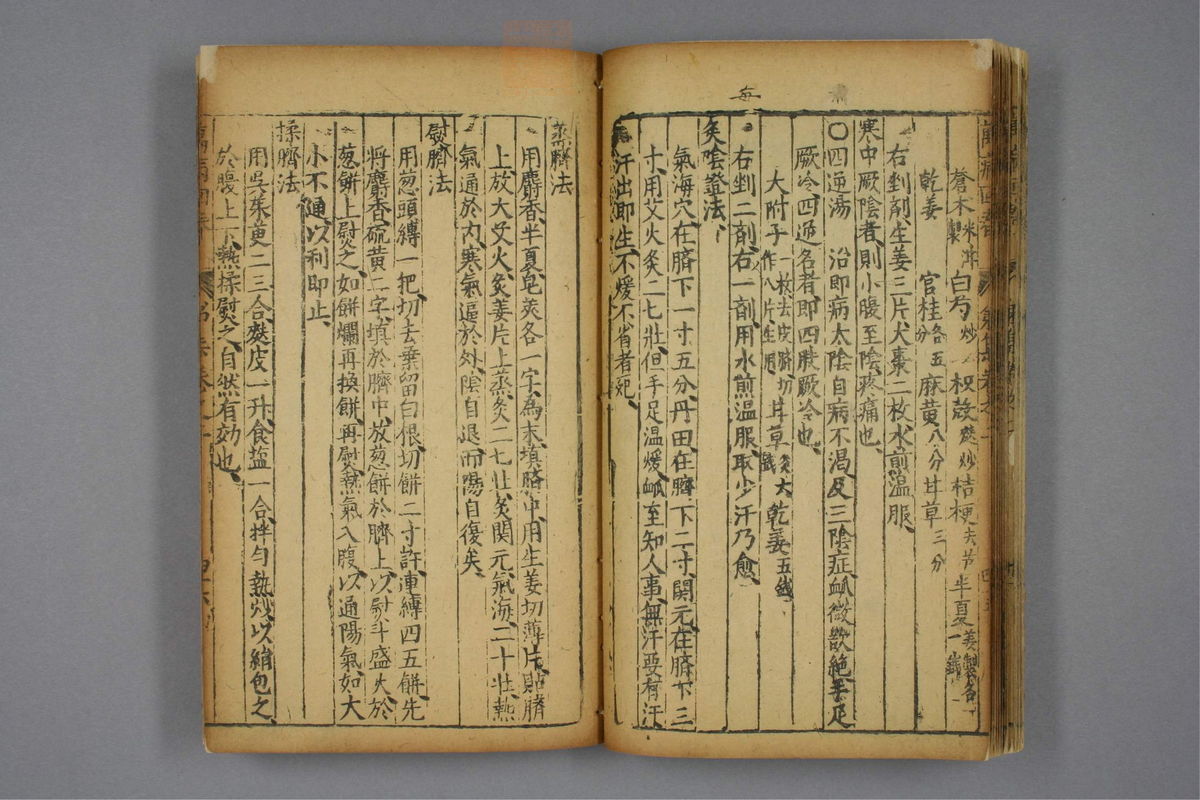 蒼术米泔製 白芍炒 枳殻麩炒 桔梗去芦 半夏姜製各一錢
乾姜 官桂各五分 麻黄八分 甘草三分
右剉劑生姜三片大棗二枚水煎温服
寒中厥陰者則小腹至陰疼痛也
〇四逆湯 治即病太陰自病不渴及三陰症脉微欲絶手足
厥冷四逆名者即四肢厥冷也
大附子一枚去皮臍切作八片生用 甘草炙六錢 乾姜五錢
右剉二劑右一劑用水煎温服取少汗乃愈
灸陰證法
氣海穴在臍下一寸五分丹田在臍下二寸関元在臍下三
寸用艾火灸二七壯但手足温煖脉至知人事無汗要有汗
汗出即生不煖不省者死
蒸臍法
用麝香半夏皂莢各一字為末填臍中用生姜切薄片貼臍
上放大艾火灸姜片上蒸灸二七壯灸関元氣海二十壯熱
氣通於内寒氣逼於外陰自退而陽自復矣
熨臍法
用葱頭縛一把切去葉留白根切餅二寸許連縛四五餅先
將麝香硫黄二字填於臍中放葱餅於臍上以熨斗盛火於
葱餅上熨之如餅爛再換餅再熨熱氣入腹以通陽氣如大
小不通以利即止
揉臍法
用吳茱萸二三合麩皮一升食塩一合拌匀熱炒以絹包之
於腹上下熱揉熨之自然有効也